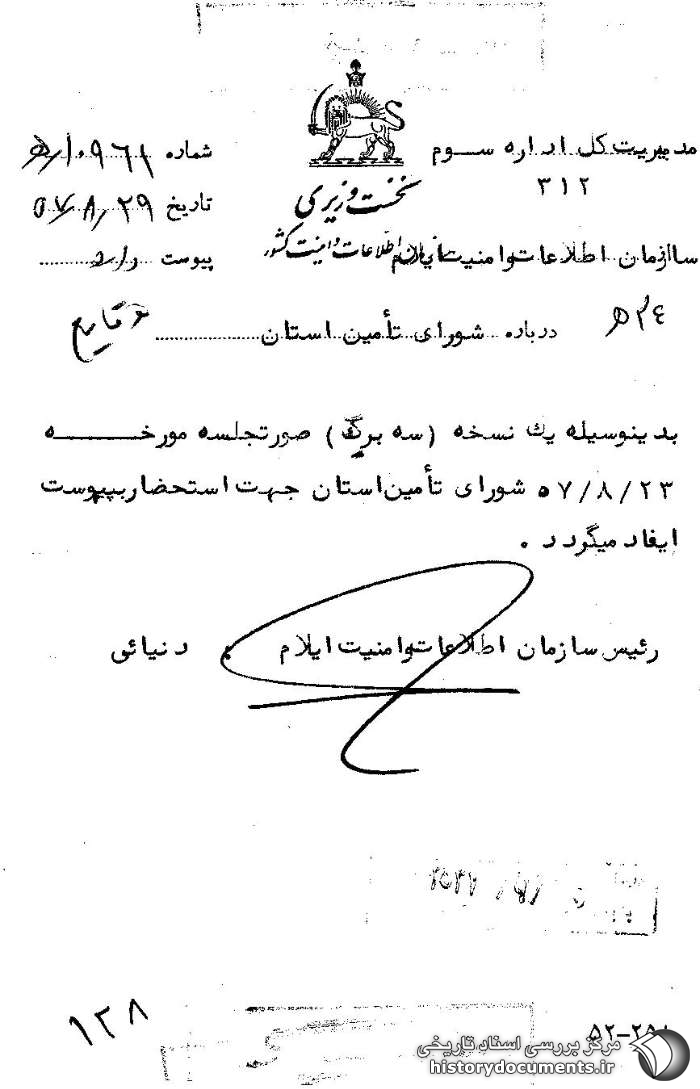 مدیریت کل اداره سوم
۳۱۲
نخست وزیری
سازمان اطلاعات و امنیت کشور
سازمان اطلاعات و امنیت ایلام
شماره ۱۰۹۶۱/ﻫ
تاریخ ۵۷/۸/۲۹
پیوست دارد
درباره شورای تأمین استان
وقایع
بدینوسیله یک نسخه (سه برگ) صورتجلسه مورخه
۵۷/۸/۲۳ شورای تأمین استان جهت استحضار بپیوست
ایفاد میگردد .
رئیس سازمان اطلاعات و امنیت ایلام . دنیائی
۱۳۸
مرکز بررسی اسناد تاریخی
historydocuments.ir